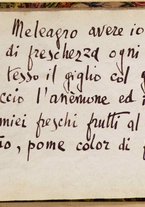 Meleagro avere io
di freschezza ogni
tesso il giglio col
ccio l'anemone ed i
miei freschi frutti al
io, pome color di